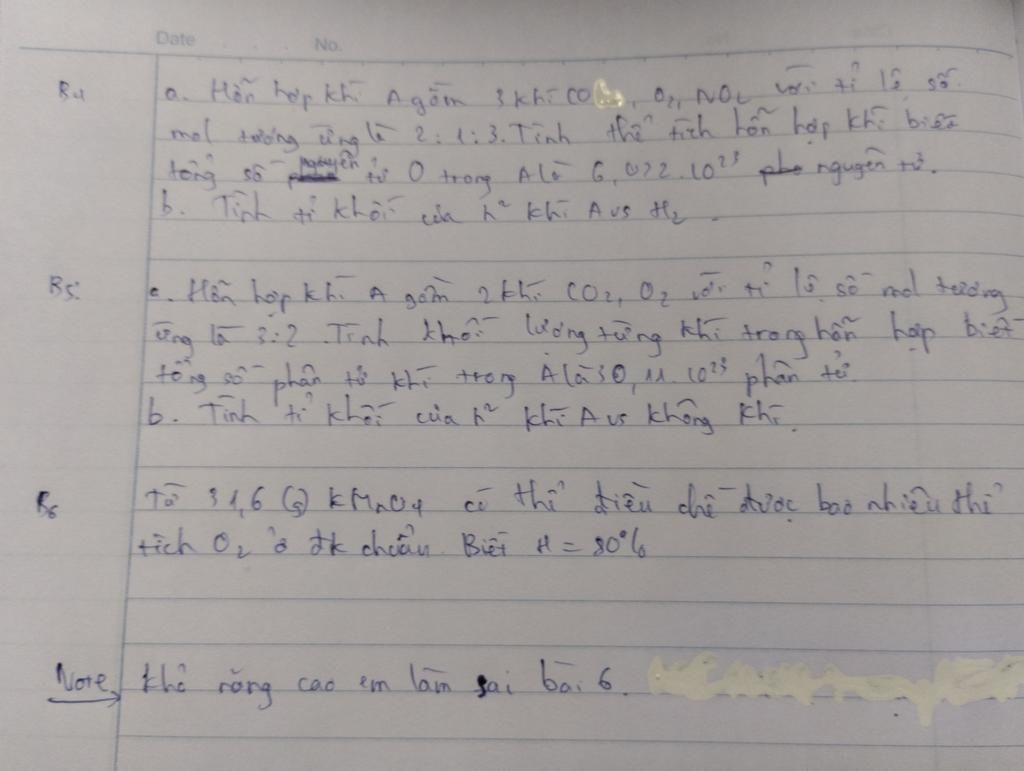 Date No.
B4 a. Hỗn hợp khí A gồm 3 khí CO , O₂, NO₂ với tỉ lệ số
mol tương ứng là 2:1:3. Tính thể tích hỗn hợp khí biết
tổng số nguyên tử O trong A là 6,022.10²³ nguyên tử.
b. Tính tỉ khối của h² khí A vs H₂.
B5: a. Hỗn hợp khí A gồm 2 khí CO₂, O₂ với tỉ lệ số mol tương
ứng là 3:2. Tính khối lượng từng khí trong hỗn hợp biết
tổng số phân tử khí trong A là 30,11.10²³ phân tử.
b. Tính tỉ khối của h² khí A vs không khí.
B6 Từ 31,6 (g) KMnO4 có thể điều chế được bao nhiêu thể
tích O₂ ở đk chuẩn. Biết H = 80%
Note, khả năng cao em làm sai bài 6.